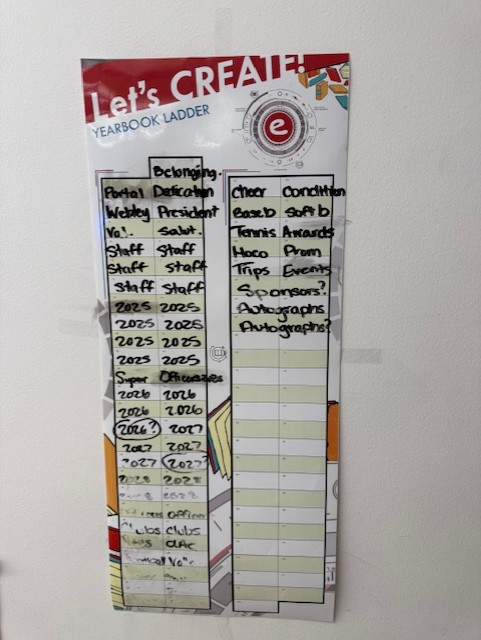 Let's CREATE!
YEARBOOK LADDER
e
Belonging.
Portal Dedication
Webley President
Val. Salut.
Staff Staff
Staff Staff
Staff Staff
2025 2025
2025 2025
2025 2025
2025 2025
Super Officers
2026 2026
2026 2026
2026? 2027
2027 2027
2027 2027?
2028 2028
2028
Office
Clubs Clubs
Cheer Condition
Baseb Softb
Tennis Awards
Hoco Prom
Trips Events
Sponsors?
Autographs
Autographs?